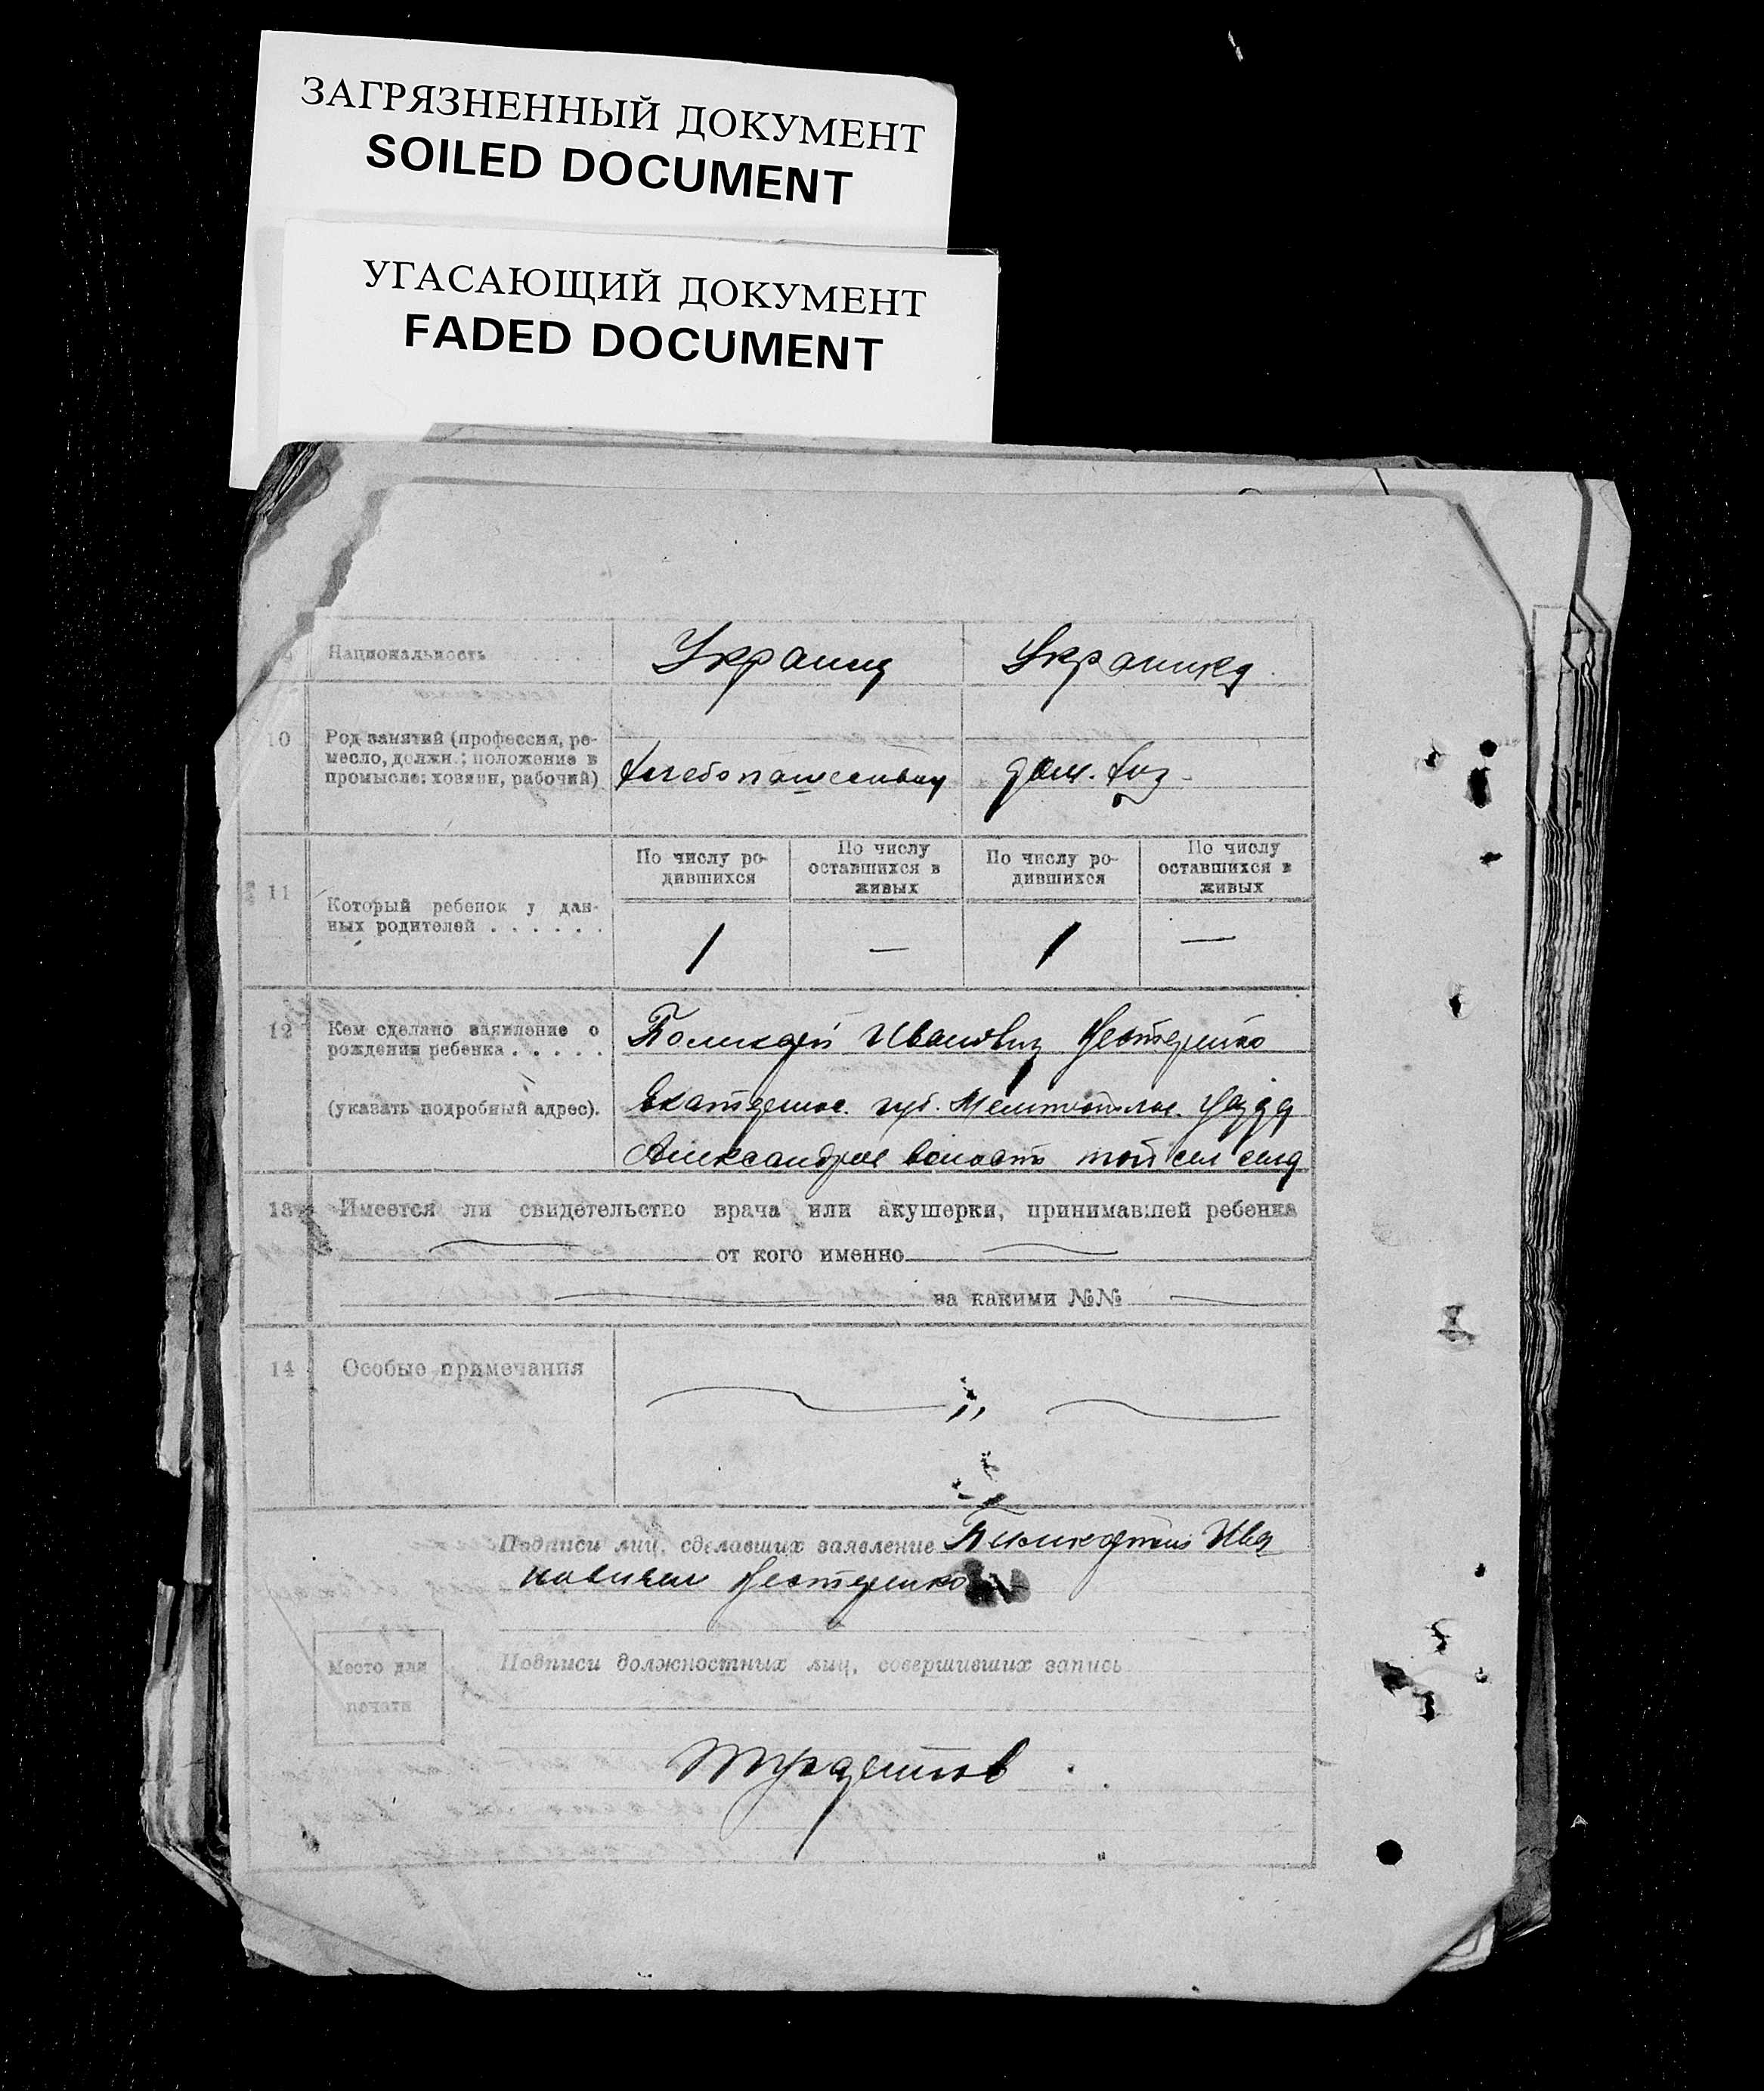 ЗАГРЯЗНЕННЫЙ ДОКУМЕНТ
SOILED DOCUMENT
УГАСАЮЩИЙ ДОКУМЕНТ
FADED DOCUMENT
9 Национальность . . . . Украинц Украинка
10 Род занятий (профессия, ре-
месло, должн.; положение в
промысле: хозяин, рабочий) хлебопашество дом. хоз.
11 Который ребенок у дан-
ных родителей . . . . . .
По числу ро-
дившихся
По числу
оставшихся в
живых
По числу ро-
дившихся
По числу
оставшихся в
живых
1 — 1 —
12 Кем сделано заявление о
рождении ребенка . . . . .
(указать подробный адрес).
Иванович Нестеренко
губ. уезда
волость той
13 Имеется ли свидетельство врача или акушерки, принимавшей ребенка
— от кого именно —
— за какими №№ —
14 Особые примечания
— „ —
Подписи лиц, сделавших заявление Ива
новичем Нестеренко
Место для
печати
Подписи должностных лиц, совершивших запись